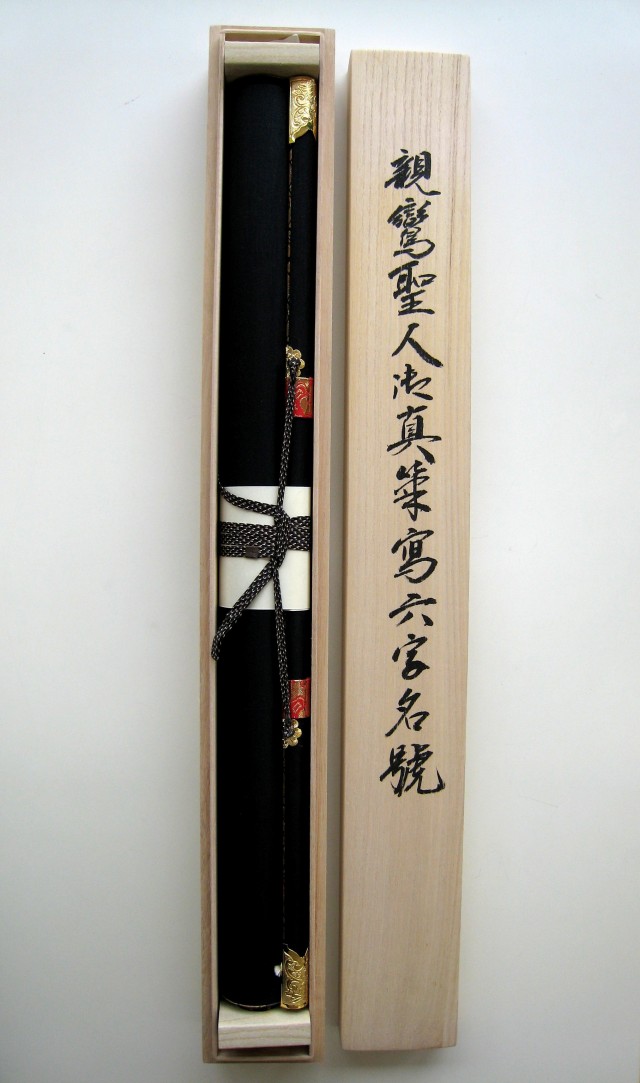 親鸞聖人御真筆寫六字名號